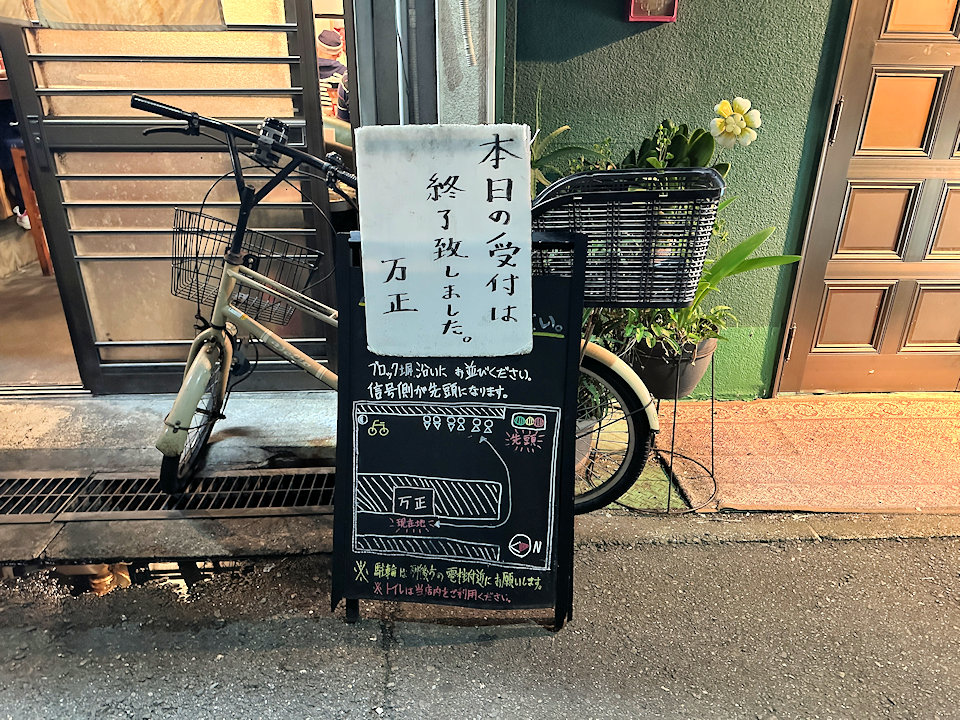 本日の受付は
終了致しました。
万正
い。
ブロック塀沿いにお並びください。
信号側が先頭になります。
先頭
万正
現在地
N
※駐輪は の電柱付近にお願いします。
※トイレは当店内をご利用ください。